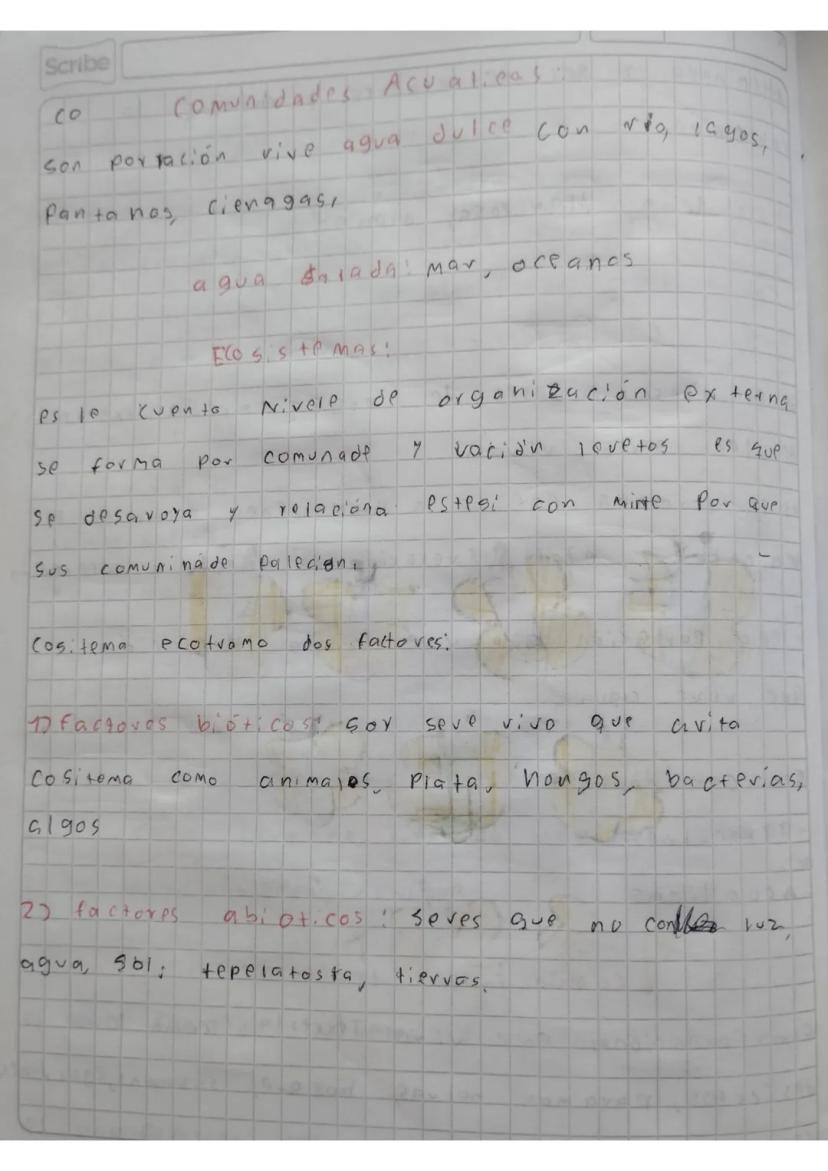 Scribe
co Comunidades Acualicas:
son porración vive agua dulce con río, lagos,
Pantanos, cienagas,
agua salada: mar, oceanos
Ecosistemas:
es le cuento Nivele de organización externa
se forma por comunade y vación lovetos es que
se desavoya y relaciona estesi con minte Por que
sus comuninade palecian.
Cositema ecotvamo dos factoves:
1) facgoves bióticos: sov seve vivo que avita
cositema como animales, Plata, hongos, bacterias,
algos
2) factores abioticos: seves que no luz,
agua, sol; tepelatosta, tiervas.